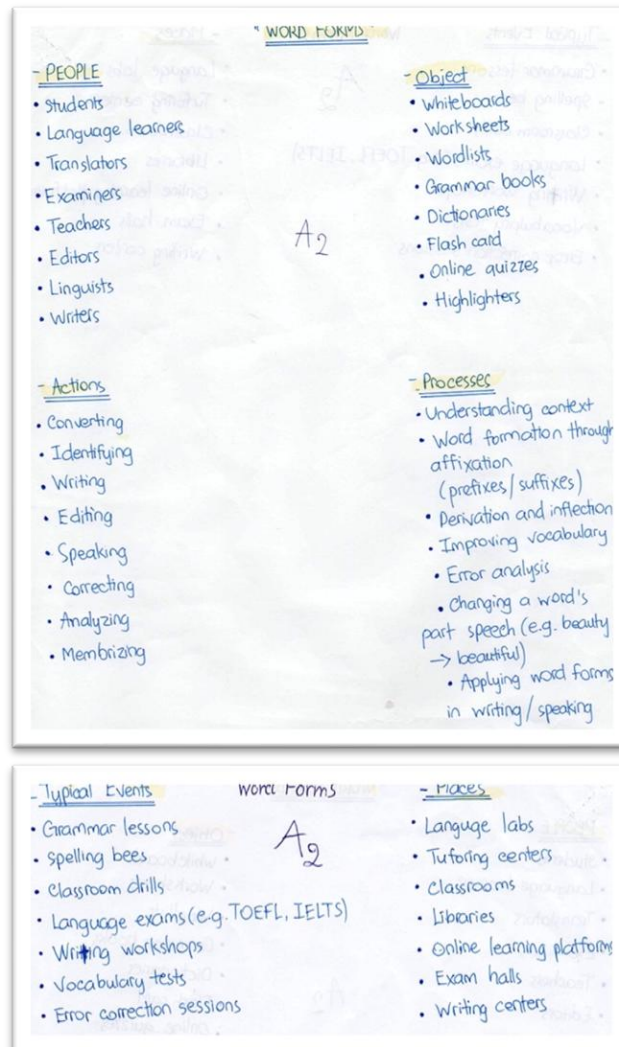 " WORD FORMS "
- PEOPLE
• Students
• Language learners
• Translators
• Examiners
• Teachers
• Editors
• Linguists
• Writers
A2
- Object
• Whiteboards
• Worksheets
• Wordlists
• Grammar books
• Dictionaries
• Flash card
• Online quizzes
• Highlighters
- Actions
• Converting
• Identifying
• Writing
• Editing
• Speaking
• Correcting
• Analyzing
• Membrizing
- Processes
• Understanding context
• Word formation through
affixation
(prefixes/suffixes)
• Derivation and inflection
• Improving vocabulary
• Error analysis
• Changing a word's
part speech (e.g. beauty
→ beautiful)
• Applying word forms
in writing/speaking
- Typical Events
• Grammar lessons
• Spelling bees
• Classroom drills
• Language exams (e.g. TOEFL, IELTS)
• Writing workshops
• Vocabulary tests
• Error correction sessions
Word Forms
A2
- Places
• Languge labs
• Tutoring centers
• Classrooms
• Libraries
• Online learning platforms
• Exam halls
• Writing centers